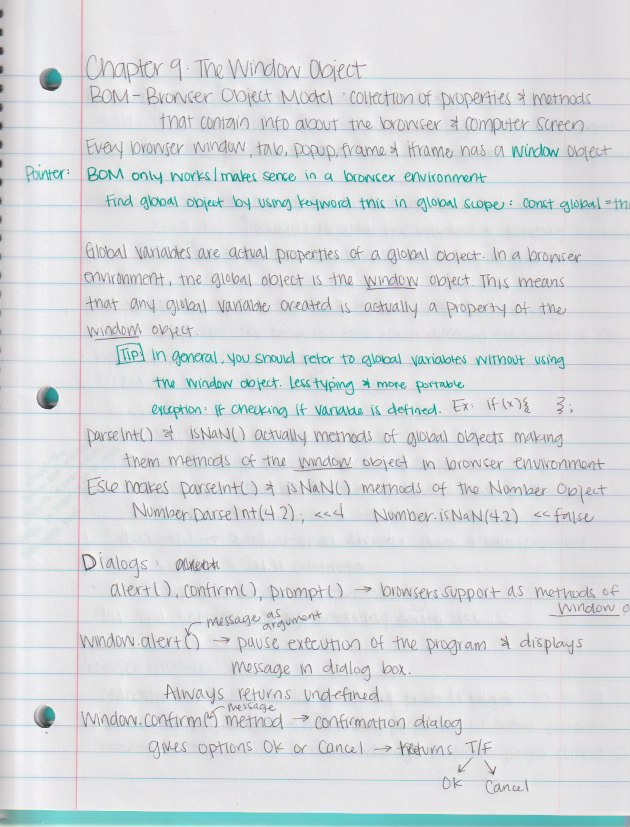 Chapter 9. The Window Object
BOM - Browser Object Model: collection of properties & methods
that contain info about the browser & computer screen.
Every browser window, tab, popup, frame & iframe has a window object
Pointer: BOM only works/makes sense in a browser environment
Find global object by using keyword this in global scope: const global = th
Global variables are actual properties of a global object. In a browser
environment, the global object is the window object. This means
that any global variable created is actually a property of the
window object.
Tip In general, you should refer to global variables without using
the window object. Less typing & more portable
exception: If checking if variable is defined. Ex: if (x){ };
parseInt() & isNaN() actually methods of global objects making
them methods of the window object in browser environment
ES6 makes parseInt() & isNaN() methods of the Number Object
Number.parseInt(4.2); <<4 Number.isNaN(4.2) <<false
Dialogs:
alert(), confirm(), prompt() → browsers support as methods of
window o
message as
argument
window.alert() → pause execution of the program & displays
message in dialog box.
Always returns undefined.
message
window.confirm() method → confirmation dialog
gives options OK or Cancel → returns T/F
OK Cancel